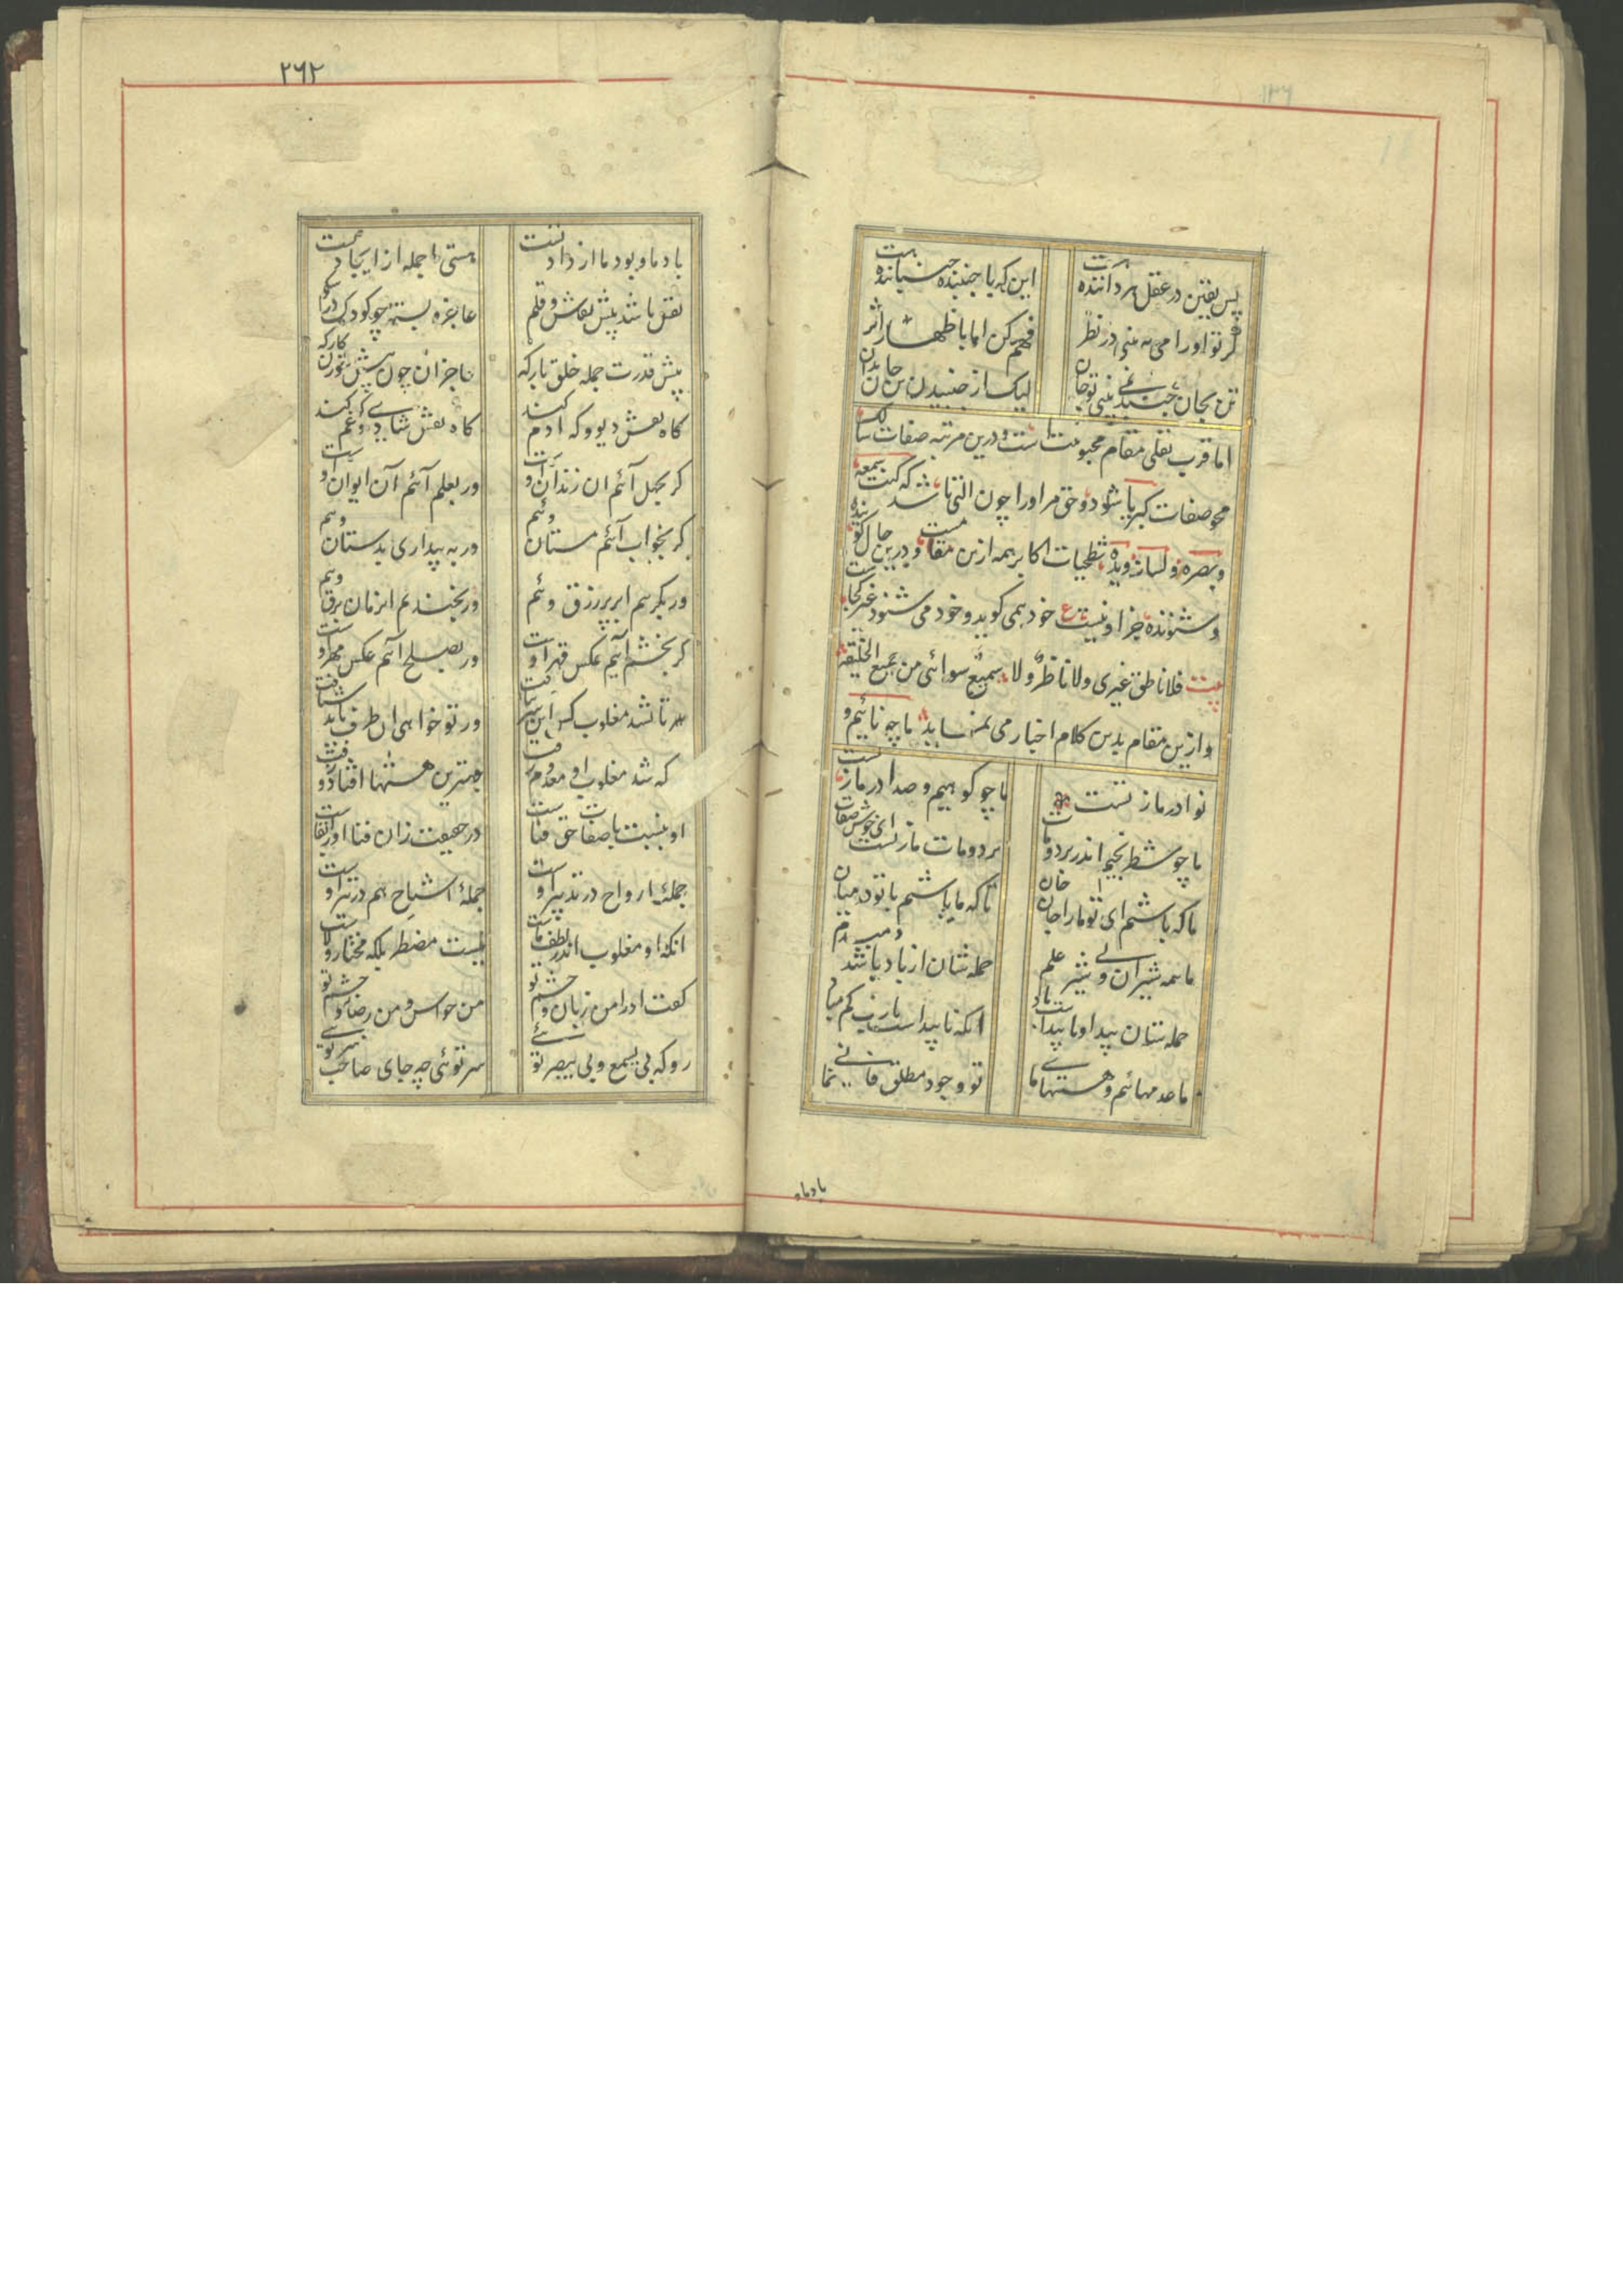 پس یقین در عقل هر داننده هست
این که با جنبنده جنباننده هست
گر تو او را می نه بینی در نظر
فهم کن اما باظهار اثر
تن بجان جنبد نمی بینی تو جان
لیک از جنبیدن تن جان بدان
اما قرب نفلی مقام محبوبیت است و درین مرتبه صفات سالک
محو صفات کبریا شود و حق مر او را چون التی باشد که کنت سمعه
و بصره و لسانه و یده شطحیات اکابر همه ازین مقامست و درین حال گوینده
و شنونده جز او نیست ع خود همی گوید و خود می شنود غیر کجاست
بیت فلا ناطق غیری ولا ناظر ولا سمیع سوائی من جمیع الخلیقة
و ازین مقام بدین کلام اخبار می نماید ما چو نائیم و
نوا در ما ز تست
ما چو کوهیم و صدا در ما ز تست
ما چو شطرنجیم اندر برد و مات
برد و مات ما ز تست ای خوش صفات
ما که باشیم ای تو ما را جان جان
تا که ما باشیم با تو در میان
ما همه شیران ولی شیر علم
حمله شان از باد باشد دم بدم
حمله شان پیدا و ناپیداست باد
انکه ناپیداست یارب کم مباد
ما عدمهائیم و هستیهای ما
تو وجود مطلق فانی نما
باد ما
۲۶۲
باد ما و بود ما از داد تست
هستی ما جمله از ایجاد تست
نقش باشد پیش نقاش و قلم
عاجز و بسته چو کودک در شکم
پیش قدرت جمله خلق بارکه
عاجزان چون پیش سوزن کارکه
کاه نقش دیو و که ادم کند
کاه نقش شادی و که غم کند
کر بجهل آئیم ان زندان اوست
ور بعلم آئیم آن ایوان اوست
کر بخواب آئیم مستان وئیم
ور به بیداری بدستان وئیم
ور بکریم ابر پر زرق وئیم
ور بخندیم ان زمان برق وئیم
کر بخشم آئیم عکس قهر اوست
ور بصلح آئیم عکس مهر اوست
تا نشد مغلوب کس این سر نیافت
ور تو خواهی ان طرف باید شتافت
که شد مغلوب او معدوم
بهترین هستیها افتاد و رفت
او بنسبت با صفات حق فناست
در حقیقت زان فنا او را بقاست
جملهٔ ارواح در تدبیر اوست
جملهٔ اشباح هم در تیر اوست
انکه او مغلوب اندر لطف ماست
نیست مضطر بلکه مختار ولاست
کفت او را من زبان و چشم تو
من حواس و من رضا و خشم تو
رو که بی یسمع و بی یبصر توئی
سر توئی چه جای صاحب سر توئی